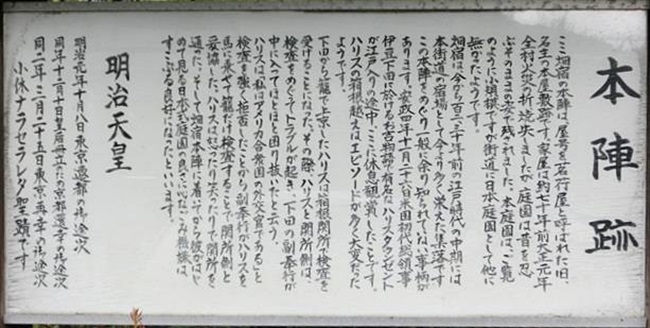 本陣跡
ここ畑宿の本陣は、屋号を茗荷屋と呼ばれた旧、
名主の本屋敷跡です。家屋は約七十年前大正元年
全村大火の折焼失しましたが、庭園は昔を忍
ぶそのままの姿で残されました。本庭園は、ご覧
のように小規模ですが街道に日本庭園として他に
無かったようです。
畑宿は今から百二三十年前の江戸時代の中期には
本街道の宿場として今より多く栄えた集落です
この本陣をめぐり一般に余り知られていない事柄が
あります。安政四年十一月二十六日米国初代総領事
伊豆下田に於けるお吉物語で有名なハリスタウンゼント
が江戸入りの途中、ここに休息観賞したことです。
ハリスの箱根越えはエピソードが多く大変だった
ようです。
下田から籠で上京したハリスは箱根関所で検査を
受けることになった。その際、ハリスと関所側は、
検査をめぐてトラブルが起き、下田の副奉行が
中に入ってほとほと困り抜いたと云う。
ハリスは「私はアメリカ合衆国の外交官である」と
検査を強く拒否したことから副奉行がハリスを
馬に乗せて籠だけ検査することで関所側と
妥協した。ハリスは怒ったり笑ったりで関所を
通った、そして畑宿本陣に着いてから彼がはじ
めて見る日本式庭園の良さに心なごみ機嫌は
すこぶる良好になったといいます。
明治天皇
明治元年十月八日東京遷都の御途次
同年十二月十日皇后冊立の為京都還幸の御途次
同二年三月二十五日東京再幸の御途次
小休ナラセラレタ聖蹟です